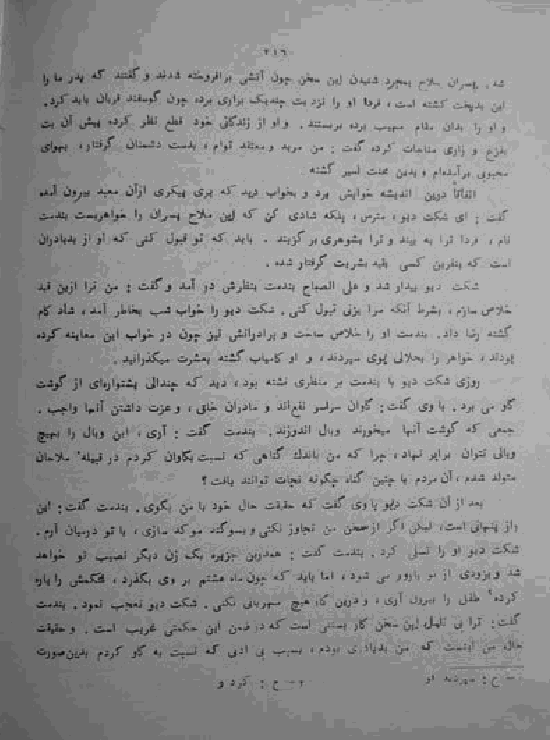 ۲۱۶
شد. پسران ملاح بمجرد شنیدن این سخن چون آتشی برافروخته شدند و گفتند که پدر ما را
این بدبخت کشته است، فردا او را نزد بت چندیک برای برده چون گوسفند قربان باید کرد.
و او را بدان مقام مهیب برده بربستند. و او از زندگانی خود قطع نظر کرده پیش آن بت
بفزع و زاری مناجات کرده گفت: من مرید و معتقد توام، بدست دشمنان گرفتار، بهوای
محبوبی برآمده‌ام و بدین محنت اسیر گشته
اتفاقاً درین اندیشه خوابش برد و بخواب دید که پری پیکری ازآن معبد بیرون آمد،
گفت: ای شکت دیو، مترس، بلکه شادی کن که این ملاح پسران را خواهریست بندمت
نام، فردا ترا به بیند و ترا بشوهری برگزیند. باید که تو قبول کنی که او از پدیادران
است که بنفرین کسی بقید بشریت گرفتار شده.
شکت دیو بیدار شد و علی الصباح بندمت بنظرش در آمد و گفت: من ترا ازین قید
خلاص سازم، بشرط آنکه مرا بزنی قبول کنی. شکت دیو را خواب شب بخاطر آمد، شاد کام
گشته رضا داد. بندمت او را خلاص ساخت و برادرانش نیز چون در خواب این معاینه کرده
بودند، خواهر را بحلالی بوی سپردند، و او کامیاب گشته بعشرت میگذرانید.
روزی شکت دیو با بندمت بر منظری نشسته بود، دید که چندالی پشتواره‌ای از گوشت
گاو می برد. با وی گفت: گاوان سراسر نفع‌اند و مادران خلق، و عزت داشتن آنها واجب.
جمعی که گوشت آنها میخورند وبال اندوزند. بندمت گفت: آری، این وبال را بهیچ
وبالی نتوان برابر نهاد، چرا که من باندك گناهی که نسبت بگاوان کردم در قبیله ملاحان
متولد شدم، آن مردم با چنین گناه چگونه نجات توانند یافت؟
بعد از آن شکت دیو با وی گفت که حقیقت حال خود با من بگوی. بندمت گفت: این
راز پنهانی است، لیکن اگر از سخن من تجاوز نکنی و بسوگند موکد سازی، با تو درمیان آرم.
شکت دیو او را تسلی کرد. بندمت گفت: همدرین جزیره یک زن دیگر نصیب تو خواهد
شد و بزودی از تو بارور می شود، اما باید که چون ماه هشتم بر وی بگذرد، شکمش را پاره
کرده طفل را بیرون آری، و درین کار هیچ مهربانی نکنی. شکت دیو تعجب نمود. بندمت
گفت: ترا بی تامل این سخن کار بستنی است که در ضمن این حکمتی غریب است. و حقیقت
حال من اینست که من بدیادری بودم، بسبب بی ادبی که نسبت به گاو کردم بدین‌صورت
ح: سپردند او
ح: کرد و